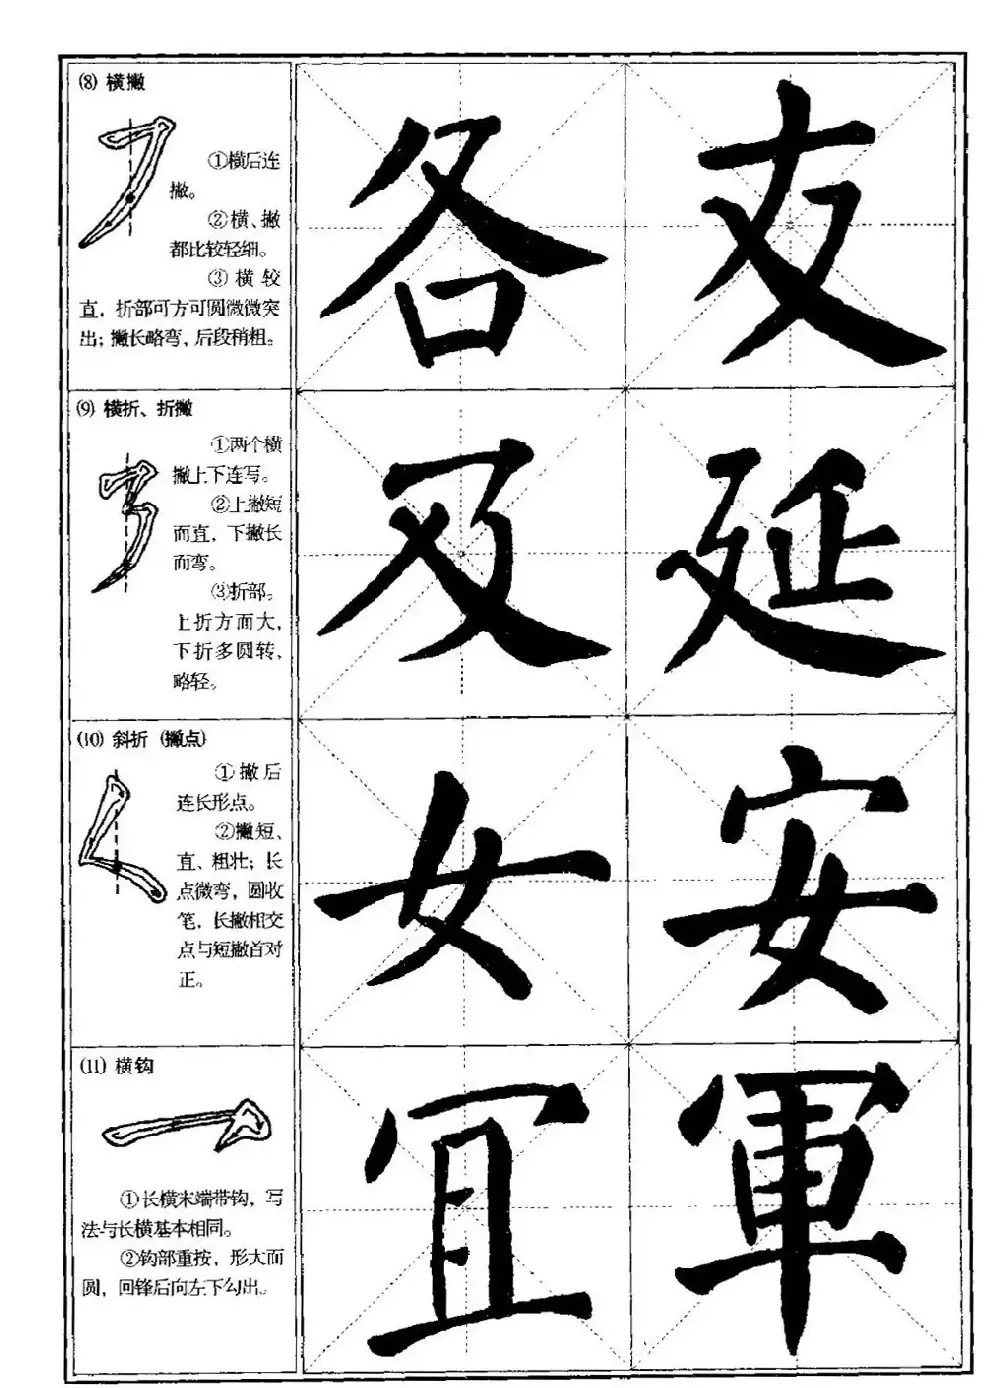 (8) 横撇
①横后连
撇。
②横、撇
都比较轻细。
③横较
直，折部可方可圆微微突
出；撇长略弯，后段稍粗。
各 友
(9) 横折、折撇
①两个横
撇上下连写。
②上撇短
而直，下撇长
而弯。
③折部。
上折方而大，
下折多圆转，
略轻。
及 延
(10) 斜折（撇点）
①撇后
连长形点。
②撇短、
直、粗壮；长
点微弯，圆收
笔，长撇相交
点与短撇首对
正。
女 安
(11) 横钩
①长横末端带钩，写
法与长横基本相同。
②钩部重按，形大而
圆，回锋后向左下勾出。
冝 軍